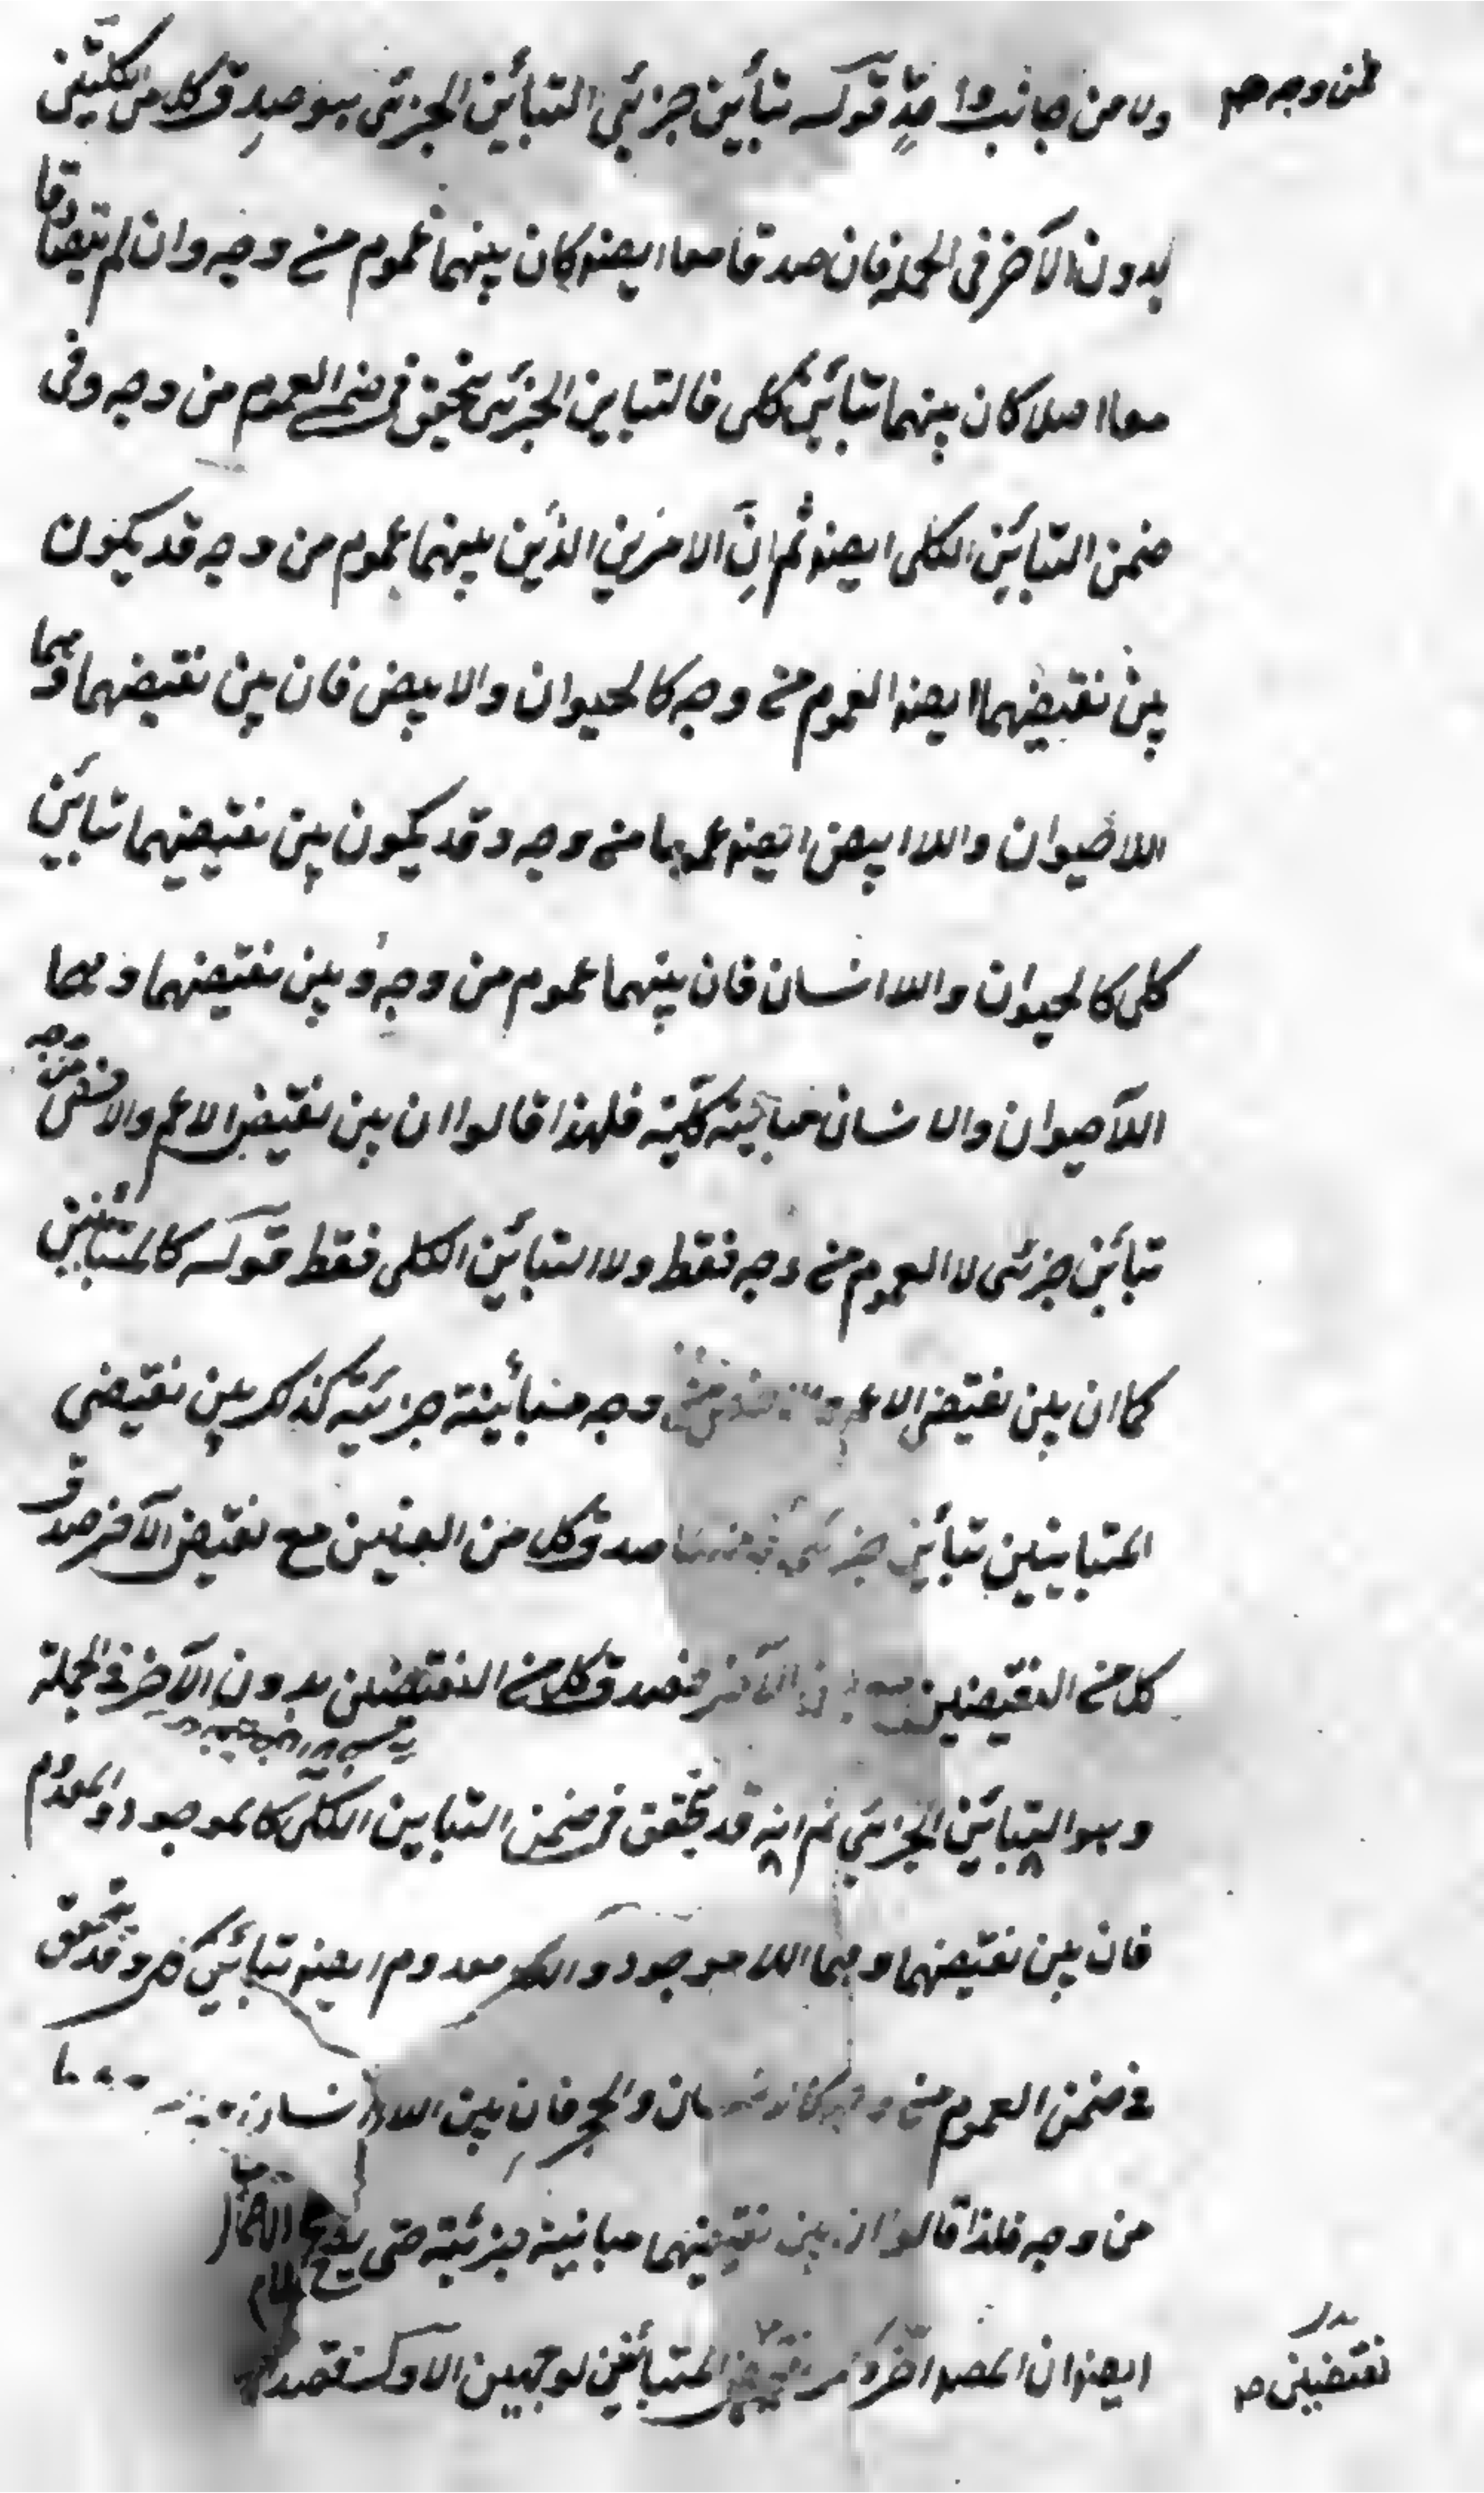 ولا من جانب واحدٍ قوله تبأين جزئي التبأين الجزئى هو صدق كل من الكليّين
من وجه صح
بدون الآخر فى الجملة فان صدقا معا ايضا كان بينهما عموم من وجه وان لم يتصادقا
معا اصلا كان بينهما تبأين كلى فالتباين الجزئى يتحقق فى ضمن العموم من وجه وفى
ضمن التبأين الكلى ايضا ثم انّ الامرين الذين بينهما عموم من وجه قد يكون
بين نقيضهما ايضا العموم من وجه كالحيوان والابيض فان بين نقيضهما وهما
اللاحيوان واللاابيض ايضا عموما من وجه وقد يكون بين نقيضهما تبأين
كلى كالحيوان واللاانسان فان بينهما عموم من وجه وبين نقيضهما وهما
اللاحيوان والانسان مبأينة كلّية فلهذا قالوا ان بين نقيض الاعم والاخص من وجه
تبأين جزئى لا العموم من وجه فقط ولا التبأين الكلى فقط قوله كالمتباينين
كما ان بين نقيض الاعم وجه مبأينة جزئية كذلك بين نقيضى
المتباينين تبأين جزئى صدق كل من العينين مع نقيض الآخر صدق
كل من النقيضين الآخر فصدق كل من النقيضين بدون الآخر فى الجملة
وهو التبأين الجزئى ثم انه قد يتحقق فى ضمن التباين الكلى كالموجود والمعدوم
فان بين نقيضهما وهما اللاموجود واللامعدوم ايضا تبأين كلى وقد يتحقق
فى ضمن العموم من والحجر فان بين
من وجه فلذا قالوا ان بين نقيضهما مباينة جزئية حتى يصح
ايضا ان المصـ اخّر ذكر المتبأينين لوجهين الاول قصد
نقيضين صح